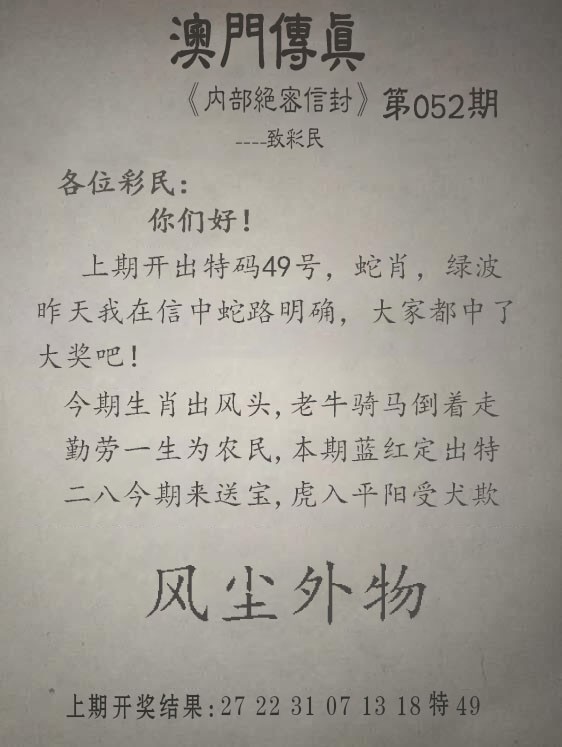 澳門傳眞
《内部絕密信封》第052期
----致彩民
各位彩民:
你们好!
上期开出特码49号，蛇肖，绿波
昨天我在信中蛇路明确，大家都中了
大奖吧!
今期生肖出风头,老牛骑马倒着走
勤劳一生为农民,本期蓝红定出特
二八今期来送宝,虎入平阳受犬欺
风尘外物
上期开奖结果:27 22 31 07 13 18 特 49